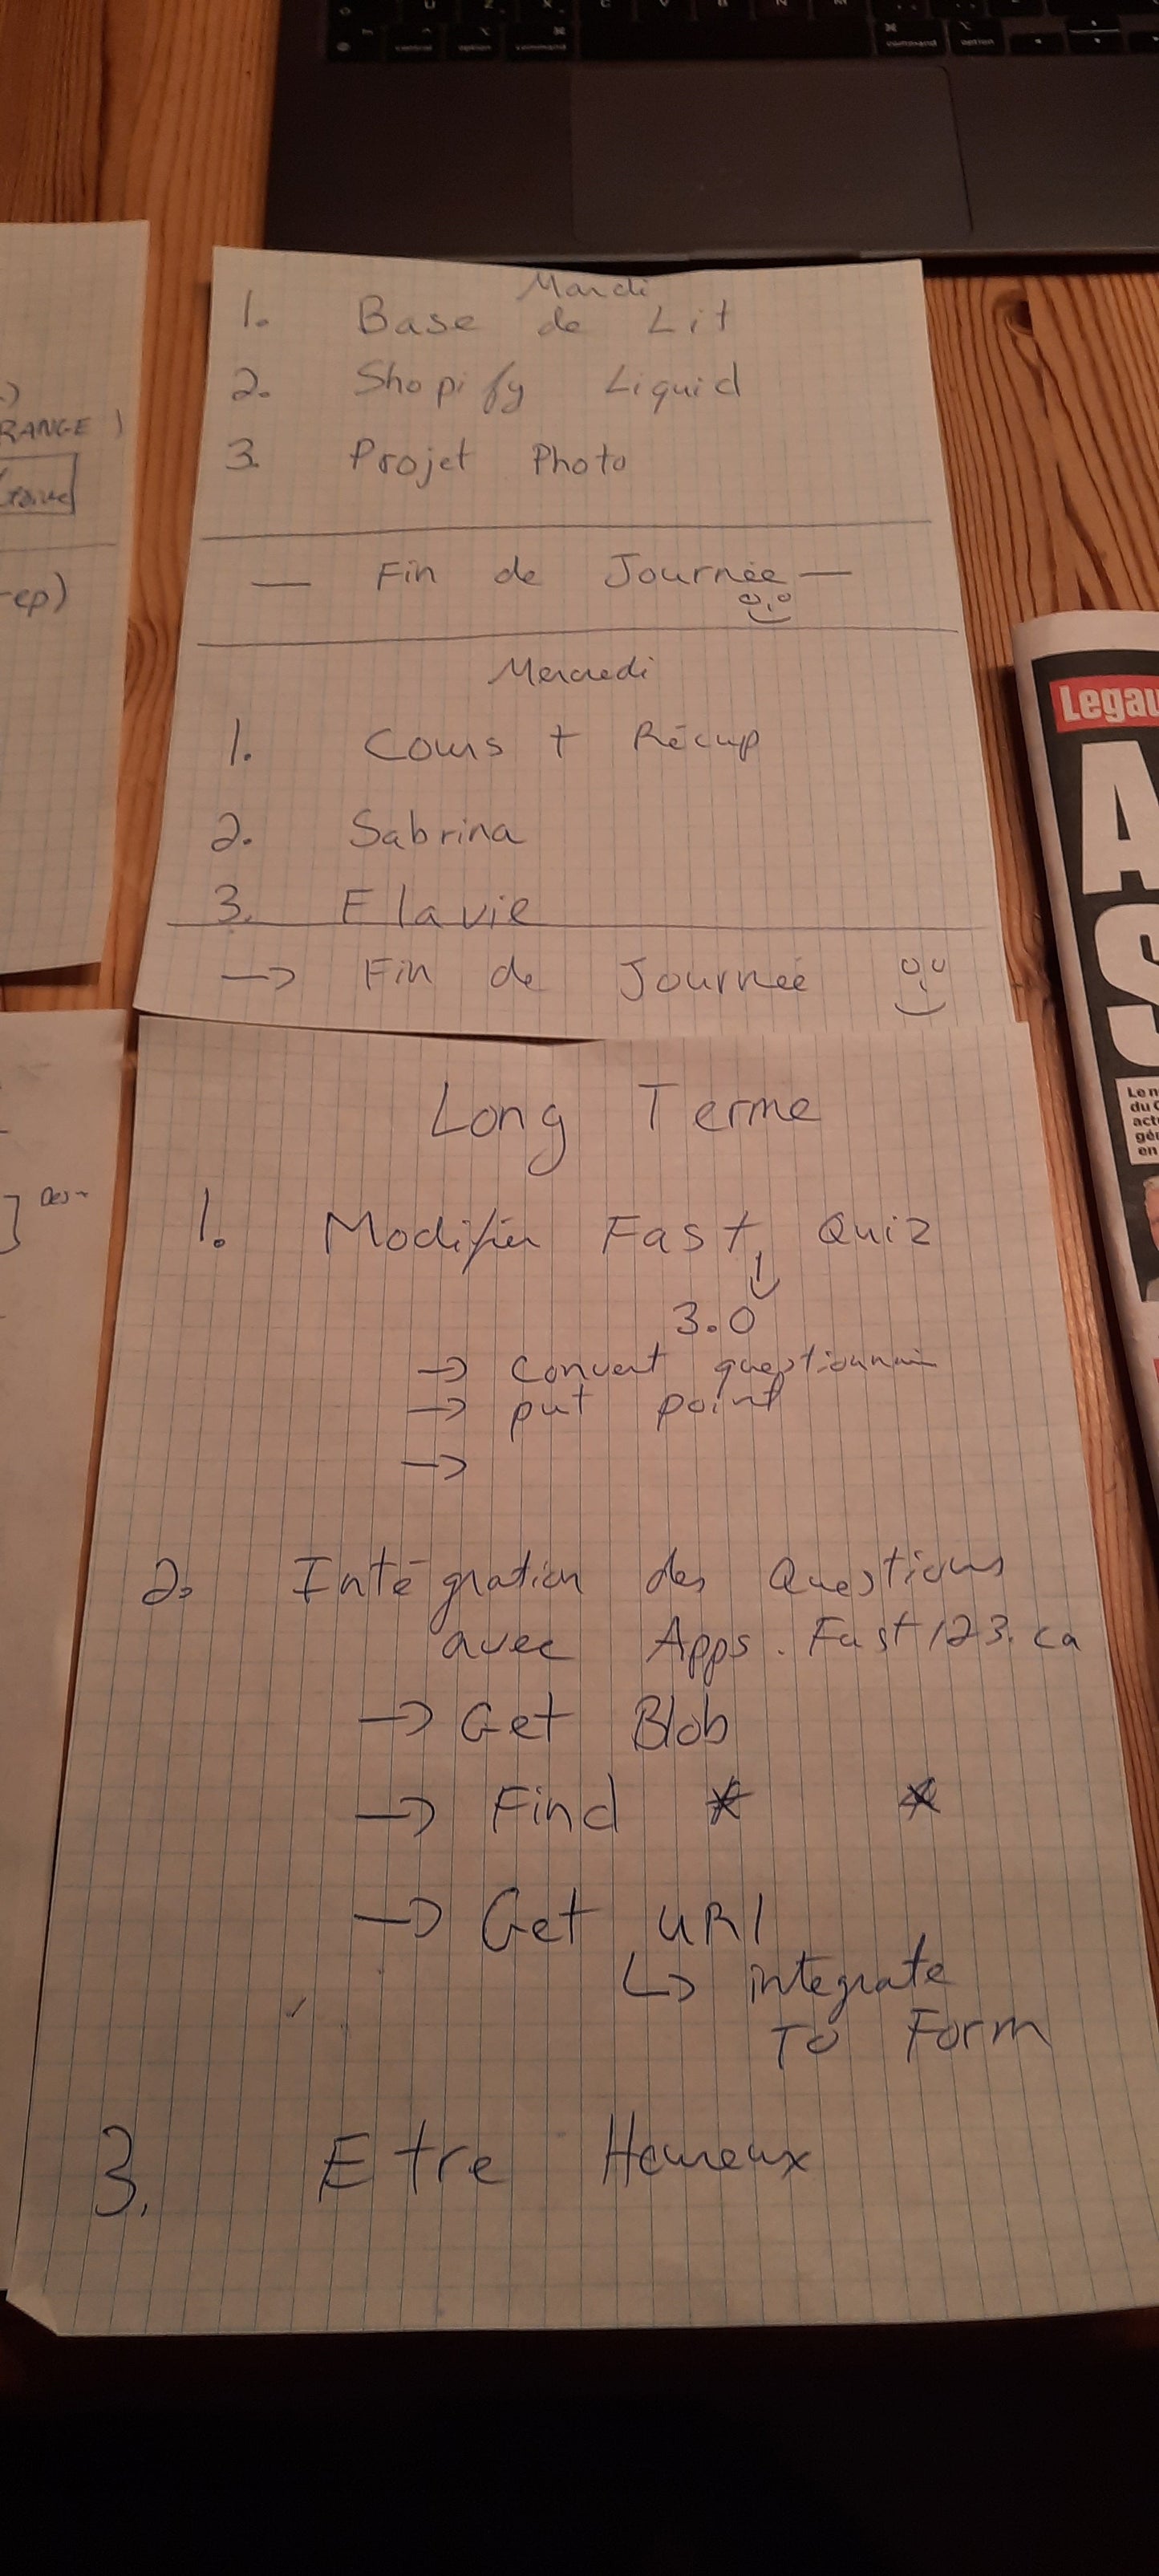 control
option
command
command
option
RANGE )
-ep)
Mardi
1. Base de Lit
2. Shopify Liquid
3. Projet Photo
— Fin de Journée —
Mercredi
1. Cours + Récup
2. Sabrina
3. Flavie
→ Fin de Journée
Long Terme
1. Modifier Fast Quiz
3.0
→ Convert questionnair
→ put point
→
2. Intégration des Questions
avec Apps.Fast123.ca
→ Get Blob
→ Find * *
→ Get URI
↳ integrate
To Form
3. Etre Heureux
Legau
A
S
Le n
du C
act
gé
en